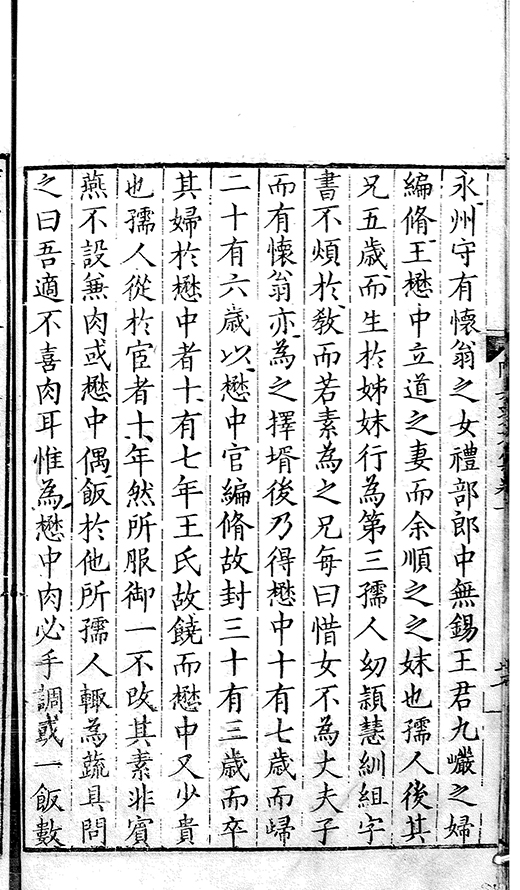 永州守有懷翁之女禮部郎中無錫王君九巖之婦
編脩王懋中立道之妻而余順之之妹也孺人後其
兄五歲而生於姊妹行為第三孺人幼頴慧紃組字
書不煩於敎而若素為之兄每曰惜女不為丈夫子
而有懷翁亦為之擇壻後乃得懋中十有七歲而歸
二十有六歲以懋中官編脩故封三十有三歲而卒
其婦於懋中者十有七年王氏故饒而懋中又少貴
也孺人從於宦者十年然所服御一不攺其素非賓
燕不設兼肉或懋中偶飯於他所孺人輙為蔬具問
之曰吾適不喜肉耳惟為懋中肉必手調或一飯數